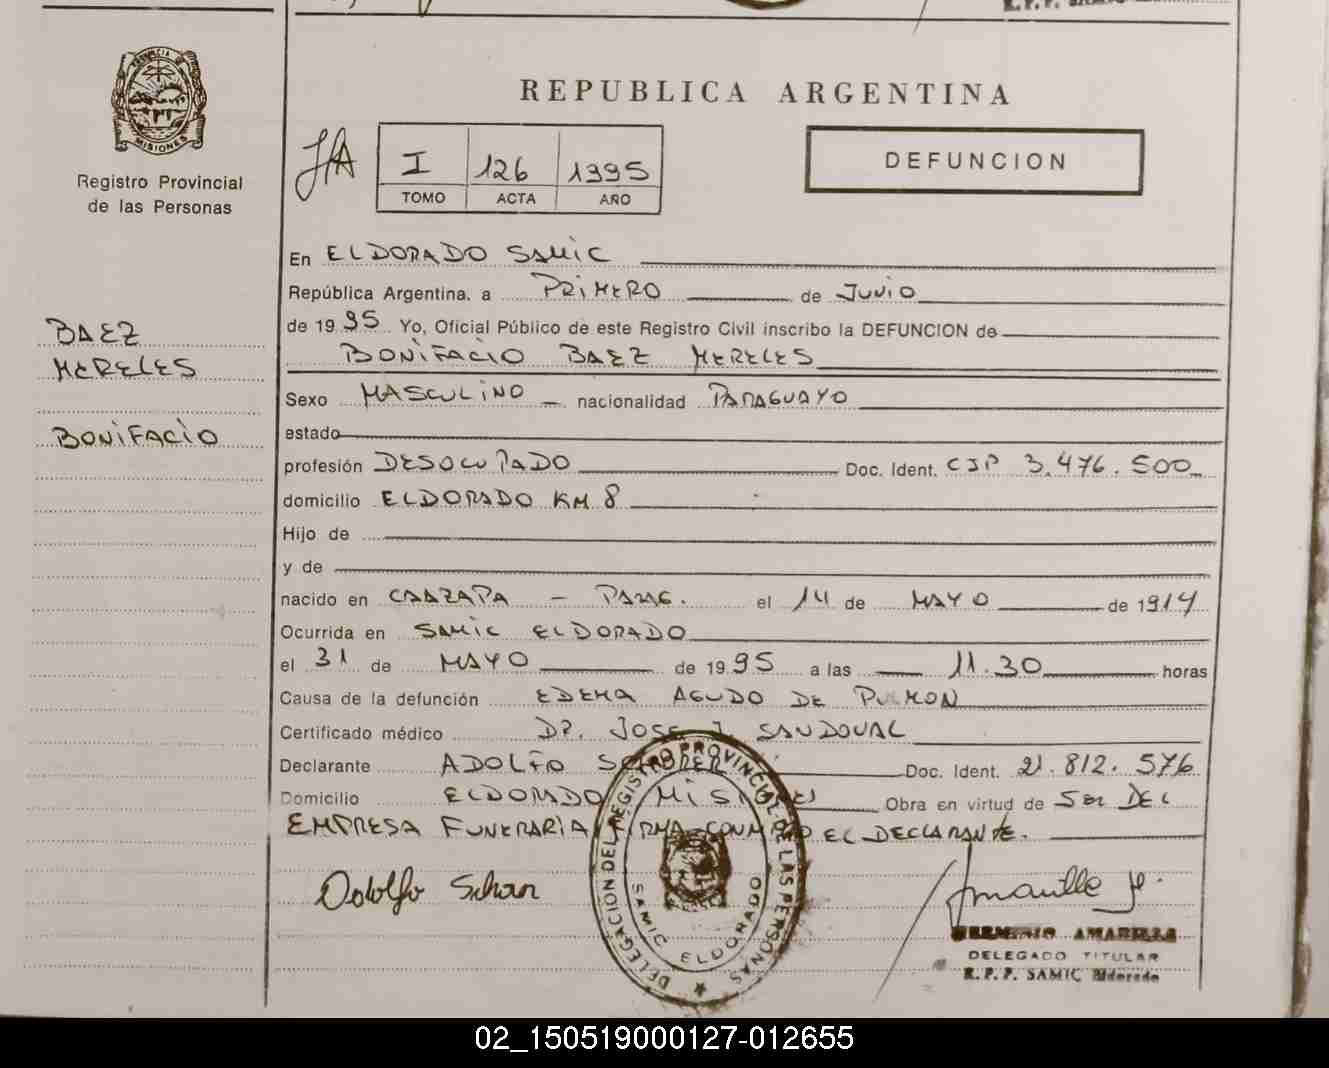 R.P.P. SAMIC
PROVINCIA DE
MISIONES
Registro Provincial
de las Personas
BAEZ
MERELES
BONIFACIO
REPUBLICA ARGENTINA
I 126 1995
TOMO ACTA AÑO
DEFUNCION
En ELDORADO SAMIC
República Argentina, a PRIMERO de JUNIO
de 1995 Yo, Oficial Público de este Registro Civil inscribo la DEFUNCION de
BONIFACIO BAEZ MERELES
Sexo MASCULINO nacionalidad PARAGUAYO
estado
profesión DESOCUPADO Doc. Ident. CIP 3.476.500
domicilio ELDORADO KM 8
Hijo de
y de
nacido en CAAZAPA - PARAG. el 14 de MAYO de 1914
Ocurrida en SAMIC ELDORADO
el 31 de MAYO de 1995 a las 11.30 horas
Causa de la defunción EDEMA AGUDO DE PULMON
Certificado médico DR. JOSE J. SANDOVAL
Declarante ADOLFO
Doc. Ident. 21.812.576
Domicilio ELDORADO MISIONES Obra en virtud de SER DEL
EMPRESA FUNERARIA FIRMA CONMIGO EL DECLARANTE.
DELEGACION DEL REGISTRO PROVINCIAL DE LAS PERSONAS
SAMIC ELDORADO
HERMINIO AMARILLA
DELEGADO TITULAR
R.P.P. SAMIC Eldorado
02_150519000127-012655